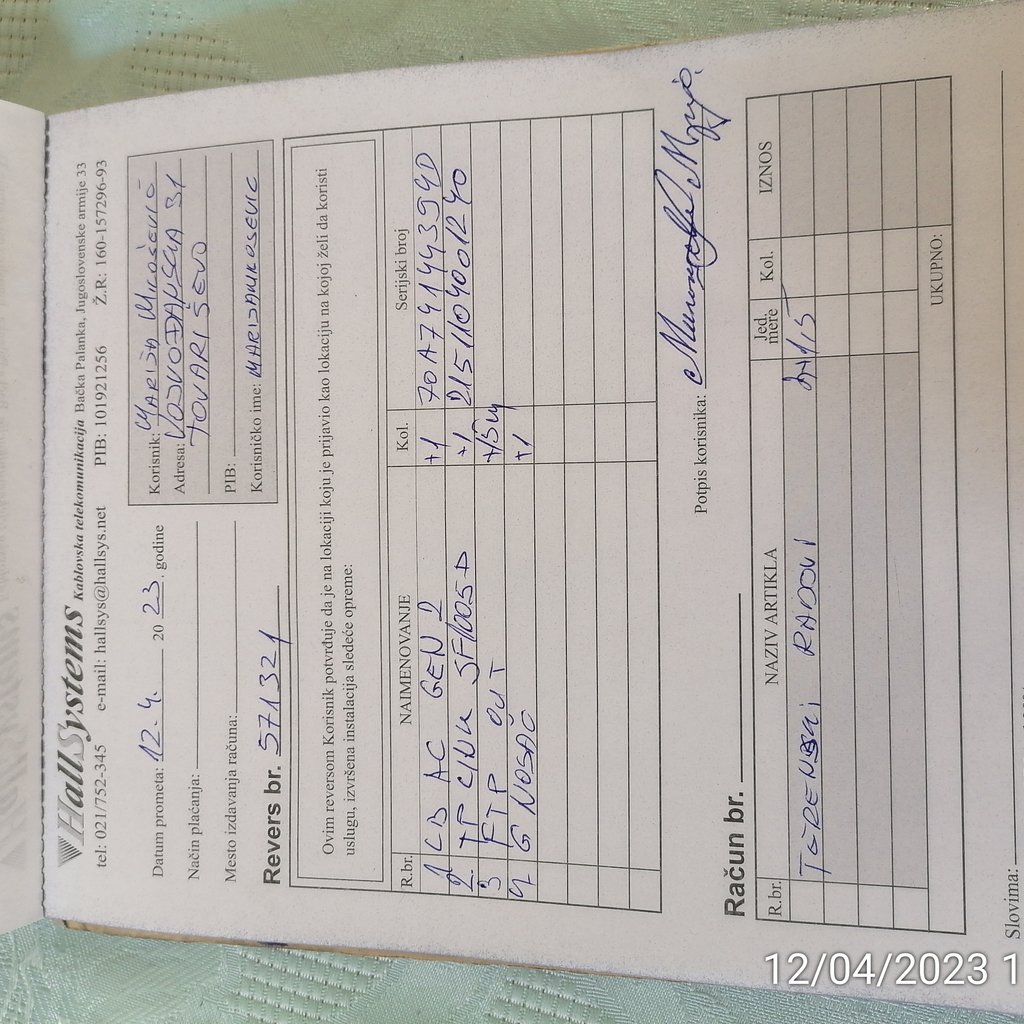 HallSystems Kablovska telekomunikacija Bačka Palanka, Jugoslovenske armije 33
tel: 021/752-345 e-mail: hallsys@hallsys.net PIB: 101921256 Ž.R: 160-157296-93
Datum prometa: 12.4. 2023. godine
Način plaćanja:
Mesto izdavanja računa:
Revers br. 571321
Korisnik: MARIJA MILOŠEVIĆ
Adresa: VOJVOĐANSKA 31
TOVARIŠEVO
PIB:
Korisničko ime: MARIJAMILOSEVIC
Ovim reversom Korisnik potvrđuje da je na lokaciji koju je prijavio kao lokaciju na kojoj želi da koristi
uslugu, izvršena instalacija sledeće opreme:
R.br. NAIMENOVANJE Kol. Serijski broj
1 LB AC GEN 2 +1 70A7419443994D
2. TP LINK SF1005D +1 2151104001240
3 FTP OUT +15m
4 G NOSAČ +1
Potpis korisnika:
Račun br.
R.br. NAZIV ARTIKLA Jed. mere Kol. IZNOS
TERENSKI RADOVI
UKUPNO:
Slovima:
12/04/2023 1